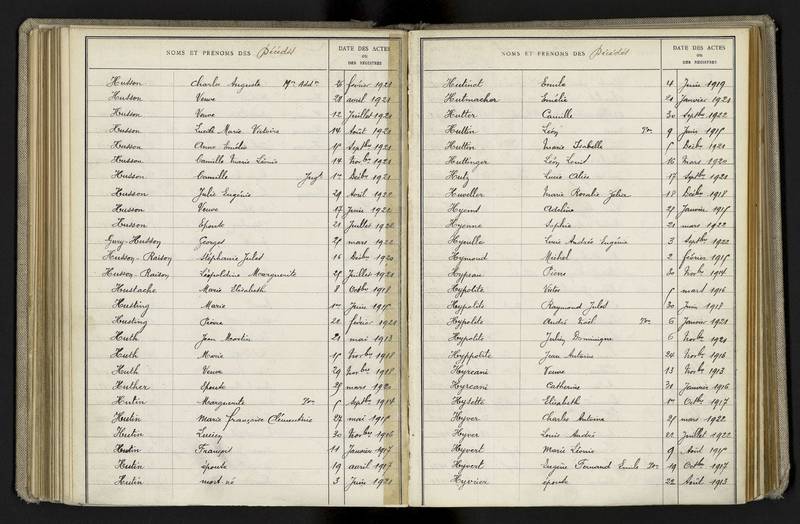 NOMS ET PRÉNOMS DES Décédés DATE DES ACTES OU DES REGISTRES
Husson Charles Auguste 26 février 1921
Husson Veuve 28 avril 1921
Husson Veuve 12 Juillet 1921
Husson Lucile Marie Victoire 14 Août 1921
Husson Anne Emélie Septbre 1921
Husson Camille Marie Léonie 14 Novbre 1921
Husson Camille Jugt 1er Décbre 1921
Husson Julie Eugénie 29 Avril 1922
Husson Veuve 17 Juin 1922
Husson Epouse 21 Juillet 1922
Gury-Husson Georges mars 1922
Husson-Raison Stéphanie Juliet 16 Décbre 1920
Husson-Raison Léopoldine Marguerite Juillet 1921
Hustache Marie Elisabeth 8 Octbre 1918
Husting Marie 1er Juin
Husting Pierre février 1921
Huth Jean Martin 21 mai 1913
Huth Marie Novbre 1918
Huth Veuve 29 Novbre 1918
Huther Epouse mars 1920
Hutin Marguerite Septbre 1914
Hutin Marie françoise Clémentine 27 mai
Hutin Lucien 30 Novbre 1916
Hutin François 11 Janvier 1917
Hutin épouse 19 avril 1917
Hutin mort-né 3 Juin 1921
NOMS ET PRÉNOMS DES Décédés DATE DES ACTES OU DES REGISTRES
Hutinet Emile 4 Juin 1919
Hutmacher Emélie Janvier 1921
Hutter Camille 30 Septbre 1922
Huttin Léon 9 Juin
Huttin Marie Isabelle Décbre 1921
Huttinger Léon Louis 16 Mars 1920
Lucie Alice 17 Septbre 1921
Huveller Marie Rosalie 18 Décbre 1918
Adeline Janvier
Hyenne Sophie 21 mars 1922
Louis Andrée Eugénie 3 Septbre 1922
Hymond Michel 2 février
Pierre Novbre 1914
Hypolite Victor mars 1916
Hypolite Raymond Juliet 30 Juin 1918
Hypolite André Noël 6 Janvier 1921
Hypolite Julien Dominique 6 Novbre 1921
Hyppolite Jean Antoine 24 Novbre 1916
Hyrcani Veuve 13 Novbre 1913
Hyrcani Catherine 31 Janvier 1916
Hysette Elisabeth Octbre 1917
Hyver Charles Antoine mars 1922
Hyver Louis André 21 Juillet 1922
Hyvert Marie Léonie 9 Août
Hyvert Eugène Fernand Emile 19 Octbre 1917
épouse 22 Août 1913